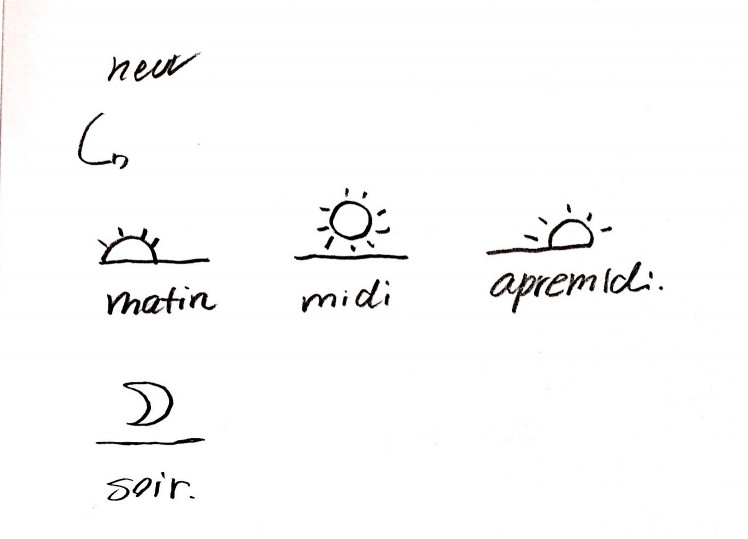 new
matin
midi
apremidi.
soir.